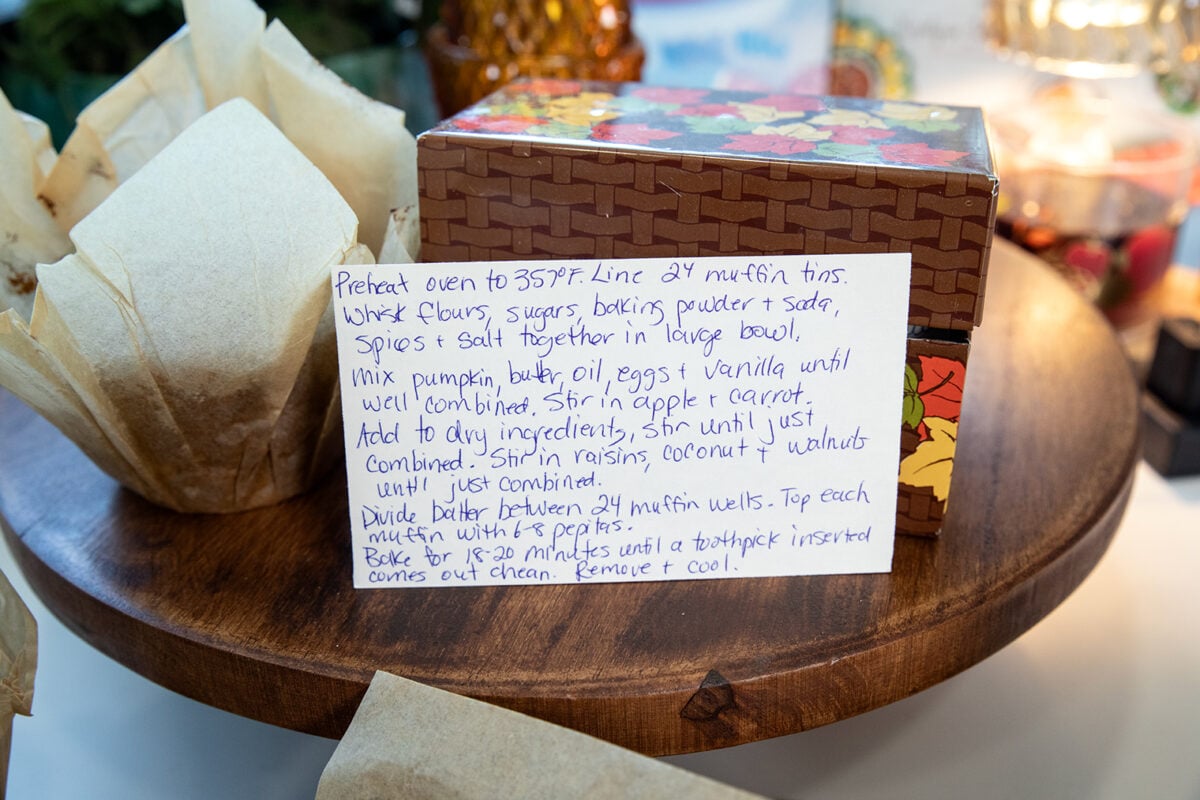 Preheat oven to 357°F. Line 24 muffin tins.
Whisk flours, sugars, baking powder + soda,
spices + salt together in large bowl.
Mix pumpkin, butter, oil, eggs + vanilla until
well combined. Stir in apple + carrot.
Add to dry ingredients, stir until just
combined. Stir in raisins, coconut + walnuts
until just combined.
Divide batter between 24 muffin wells. Top each
muffin with 6-8 pepitas.
Bake for 18-20 minutes until a toothpick inserted
comes out clean. Remove + cool.